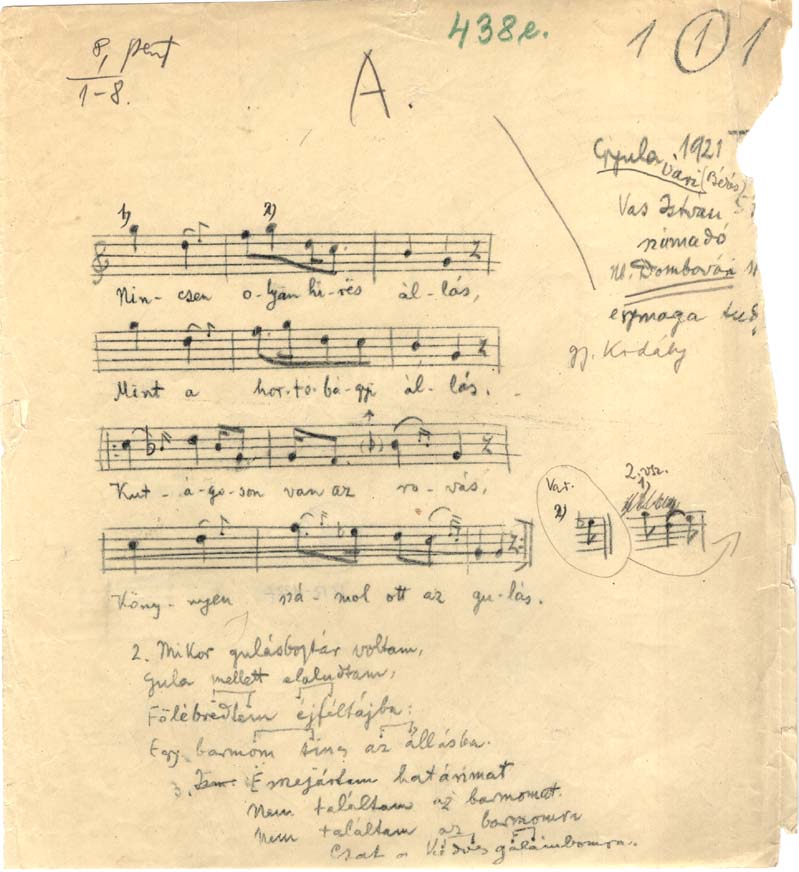 438e.
8, pent
1-8.
A.
1 1 1
Gyula, 1921
vári (Békés)
Vas István
számadó
Dombovári
egymaga
gy. Kodály
1) 2)
Nin- csen o-lyan hi-rës ál-lás,
Mint a hor-to-bá-gyi ál-lás.
Kut-á-go-son van az ro-vás,
Köny-nyen szá-mol ott az gu-lás.
Var.
2)
2. vsz.
1)
2. Mikor gulásbojtár voltam,
Gula mellett elaludtam,
Fölébredtem éjféltájba:
Egy barmom sincs az állásba.
3. Esmejártam határimat
Nem találtam az barmomat.
Nem találtam az barmomra
Csat a